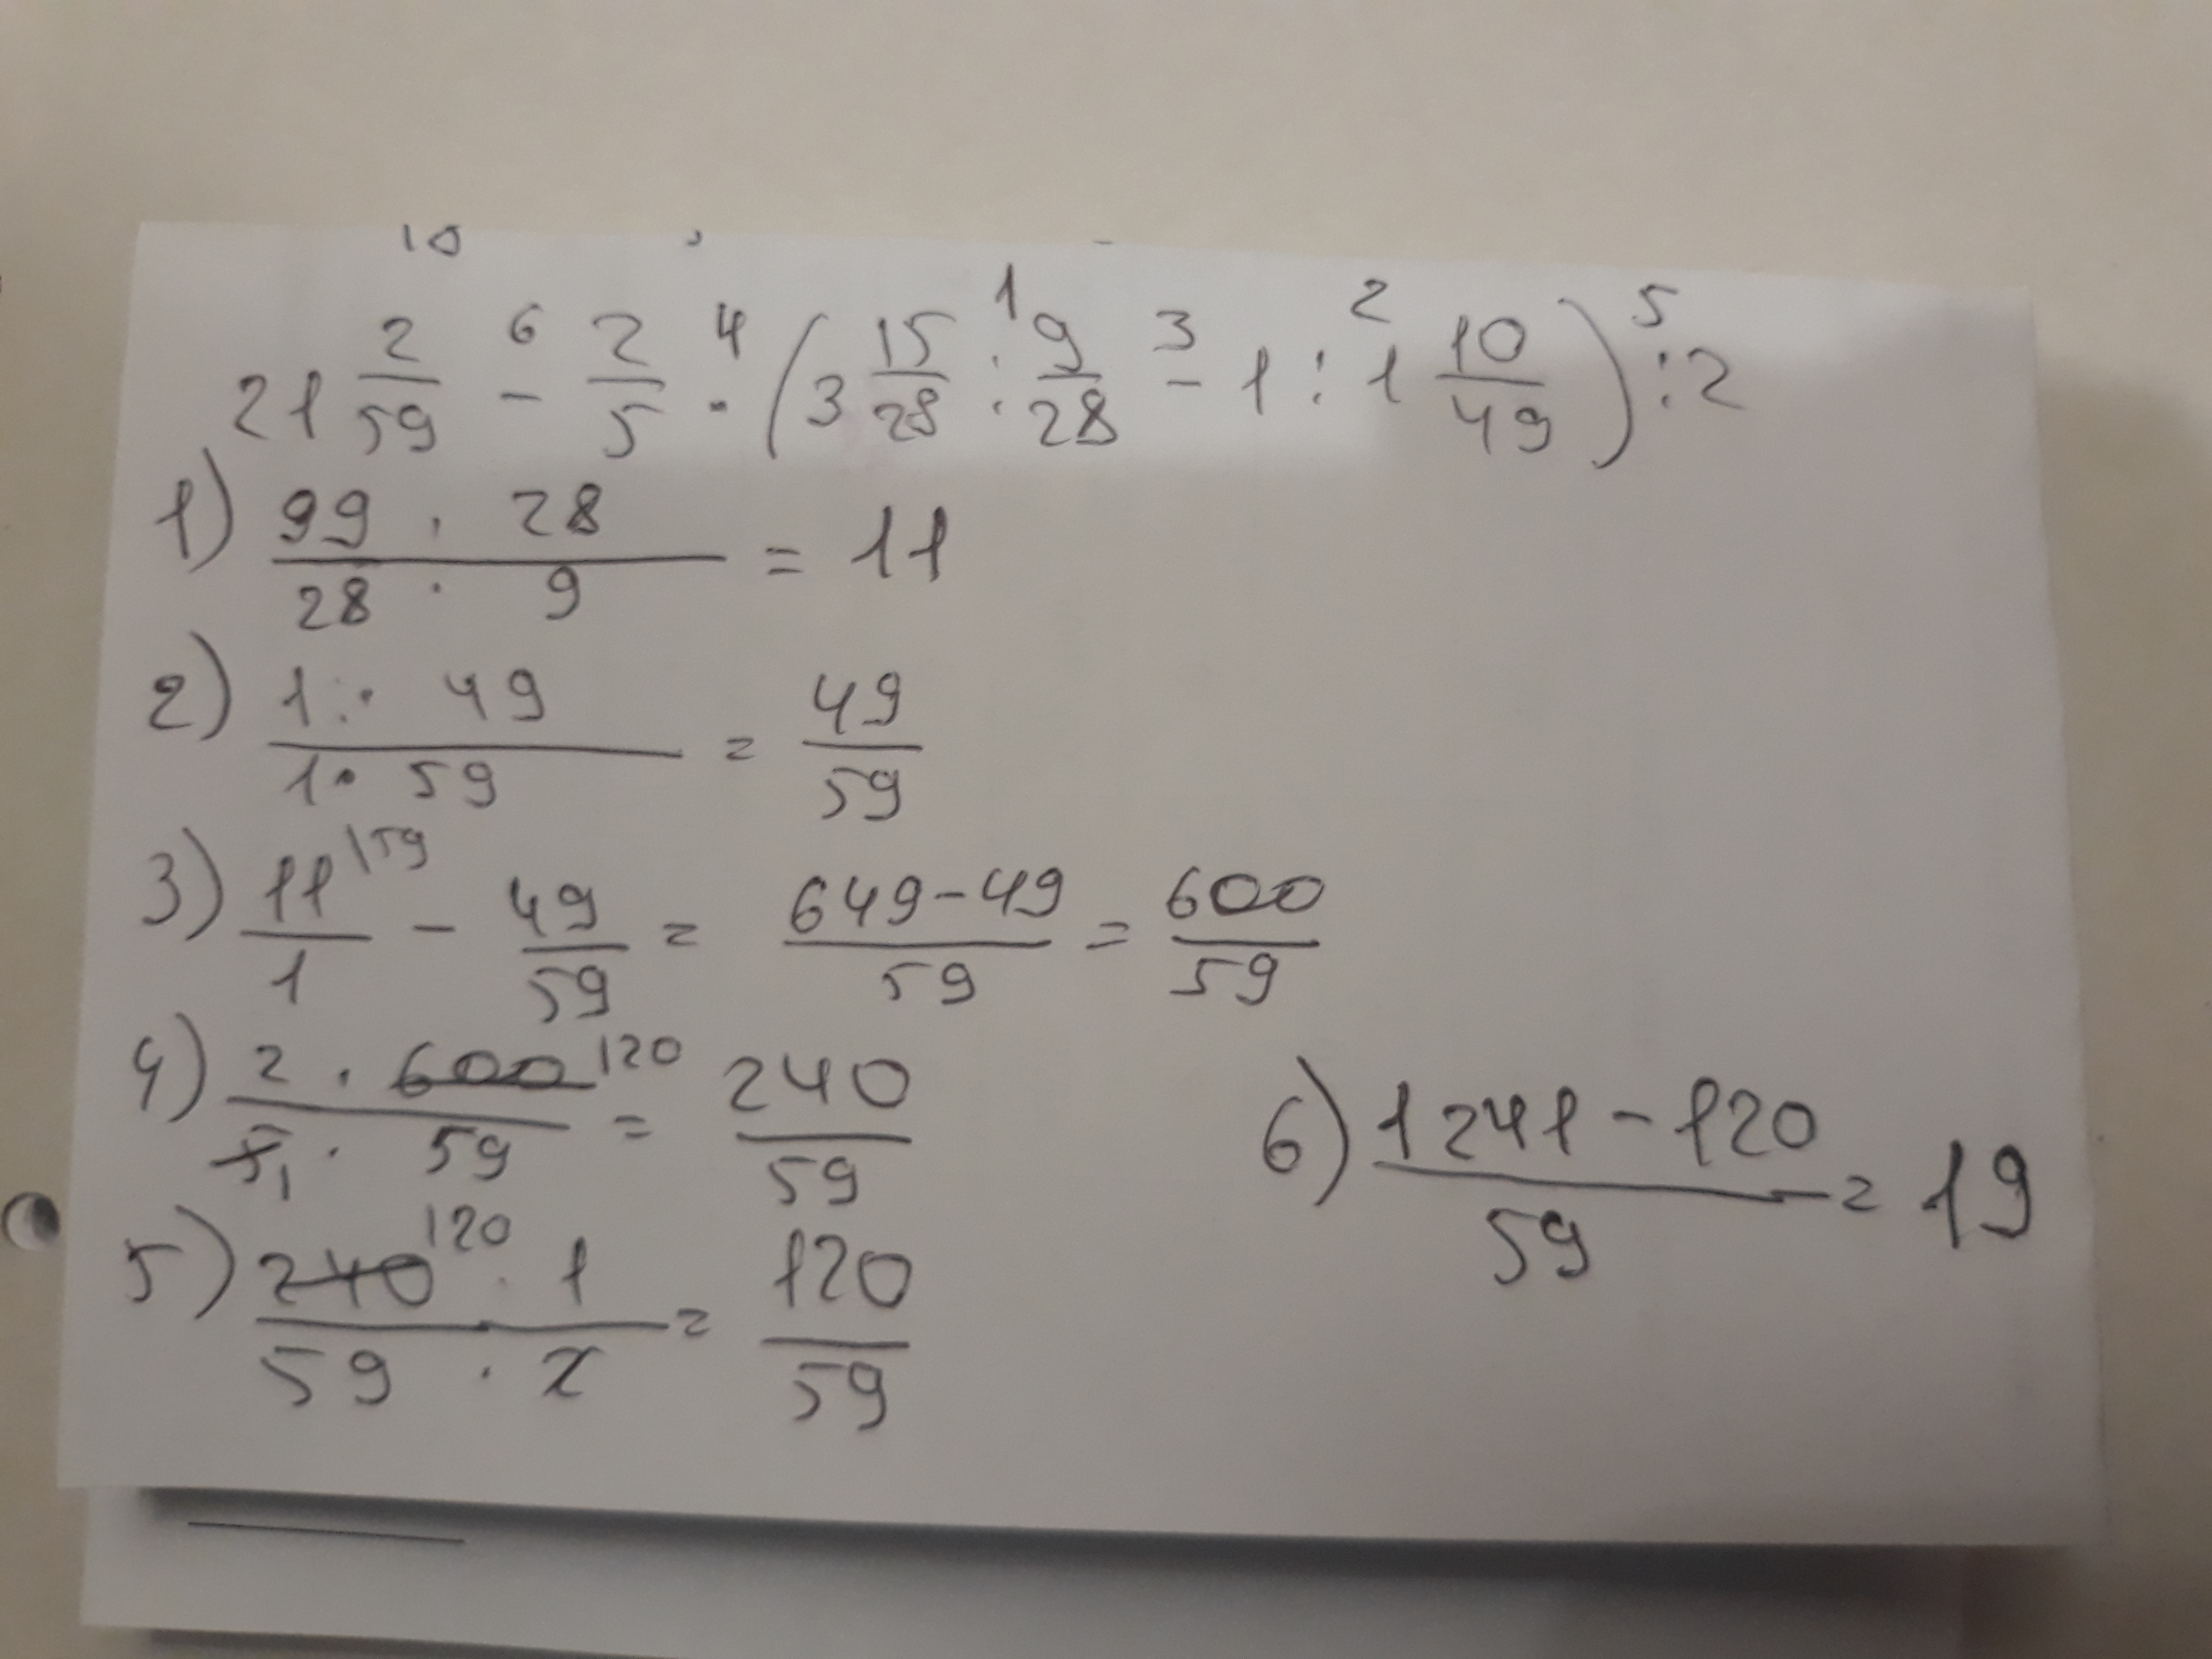 10
21 2/59 - 2/5 · (3 15/28 : 9/28 - 1 : 1 10/49) : 2
6 4 1 3 2 5
1) 99 · 28 / 28 · 9 = 11
2) 1 · 49 / 1 · 59 = 49/59
3) 11\59 / 1 - 49/59 = 649-49 / 59 = 600/59
4) 2 · 600 120 / 5 1 · 59 = 240/59
5) 240 120 · 1 / 59 · 2 = 120/59
6) 1241 - 120 / 59 = 19